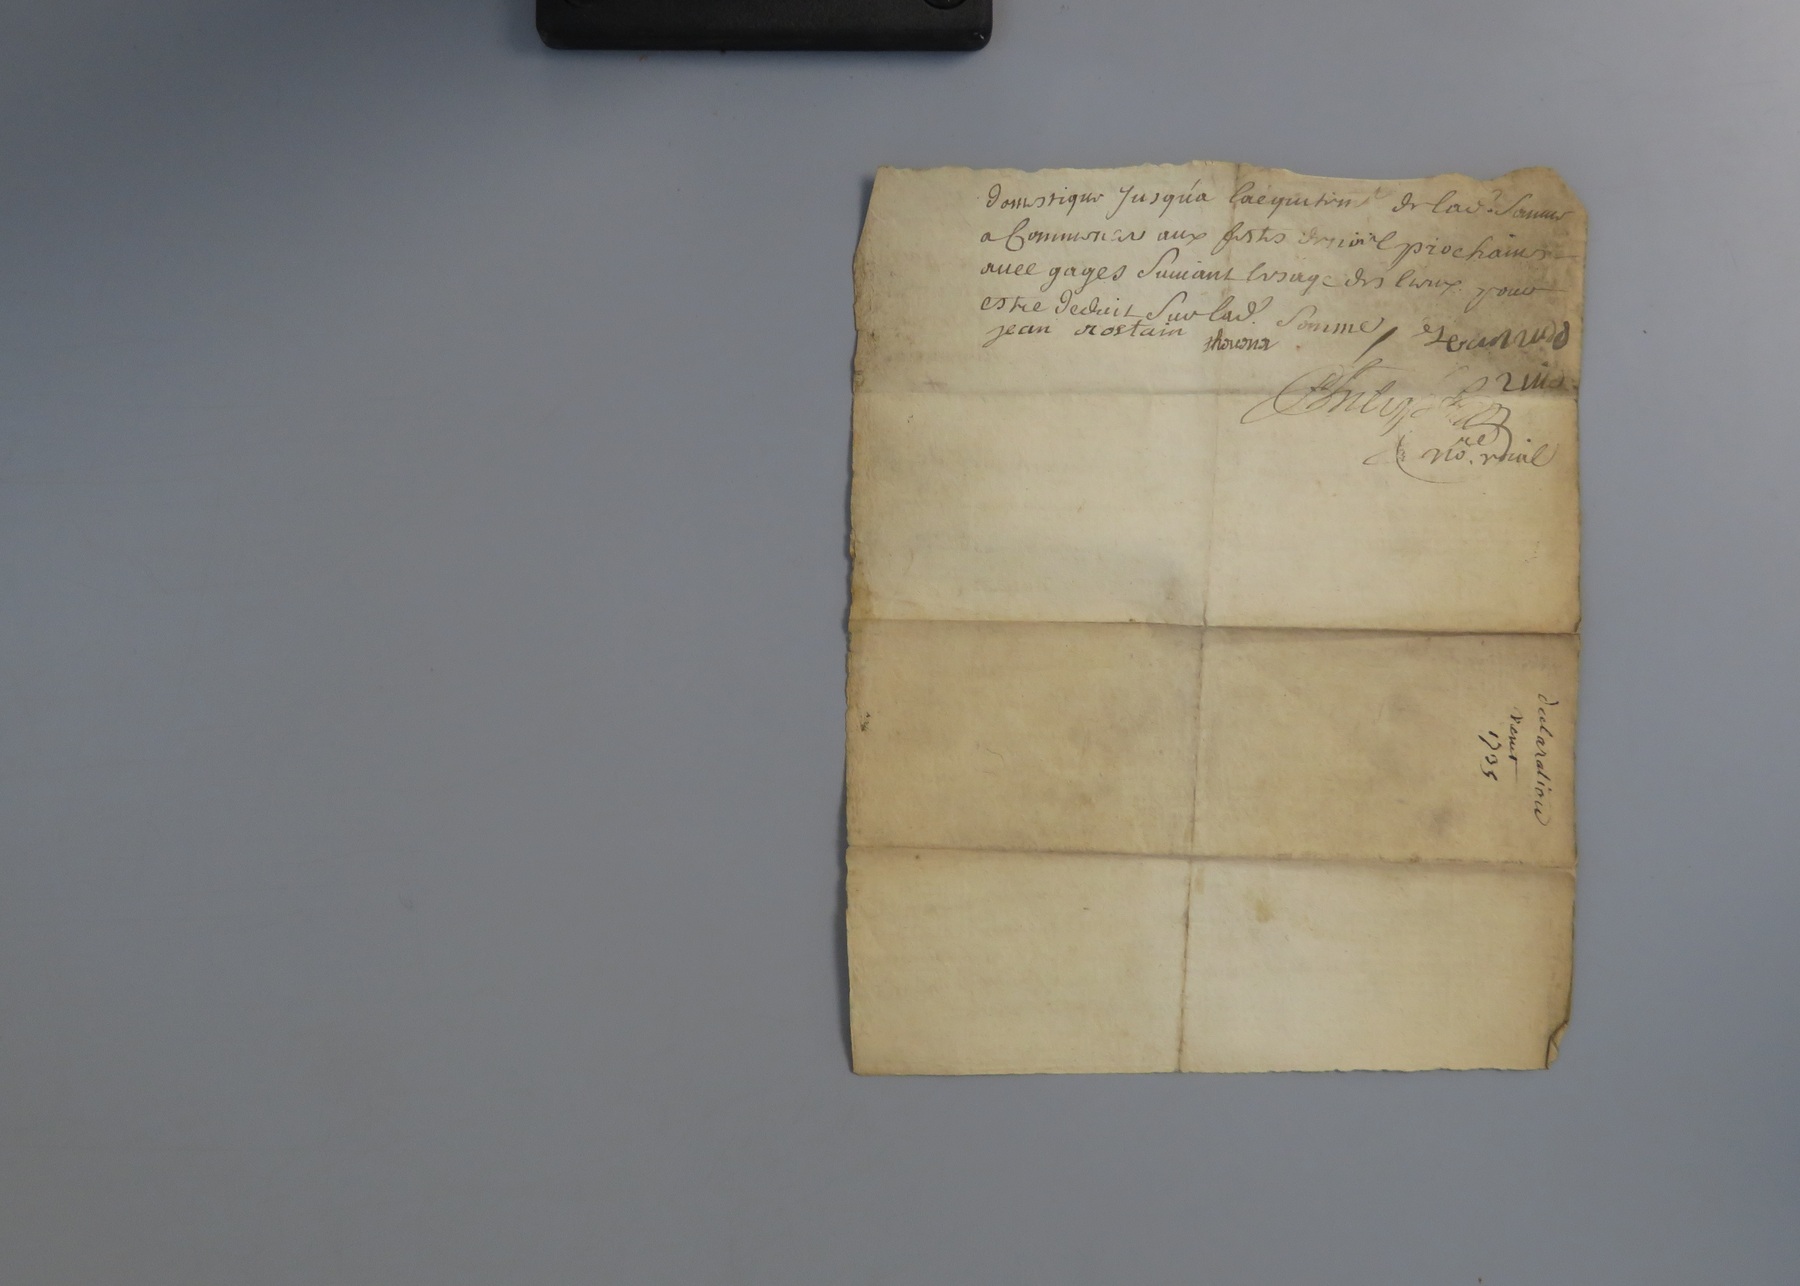 domestique Jusqu'a lacquitem.t de lad.e Somme
a Commencer aux festes de noel prochaines
avec gages Suivant lusage des lieux pour
estre deduit Sur lad.e Somme
jean rostain
no.re roial
declaration
venet
1735